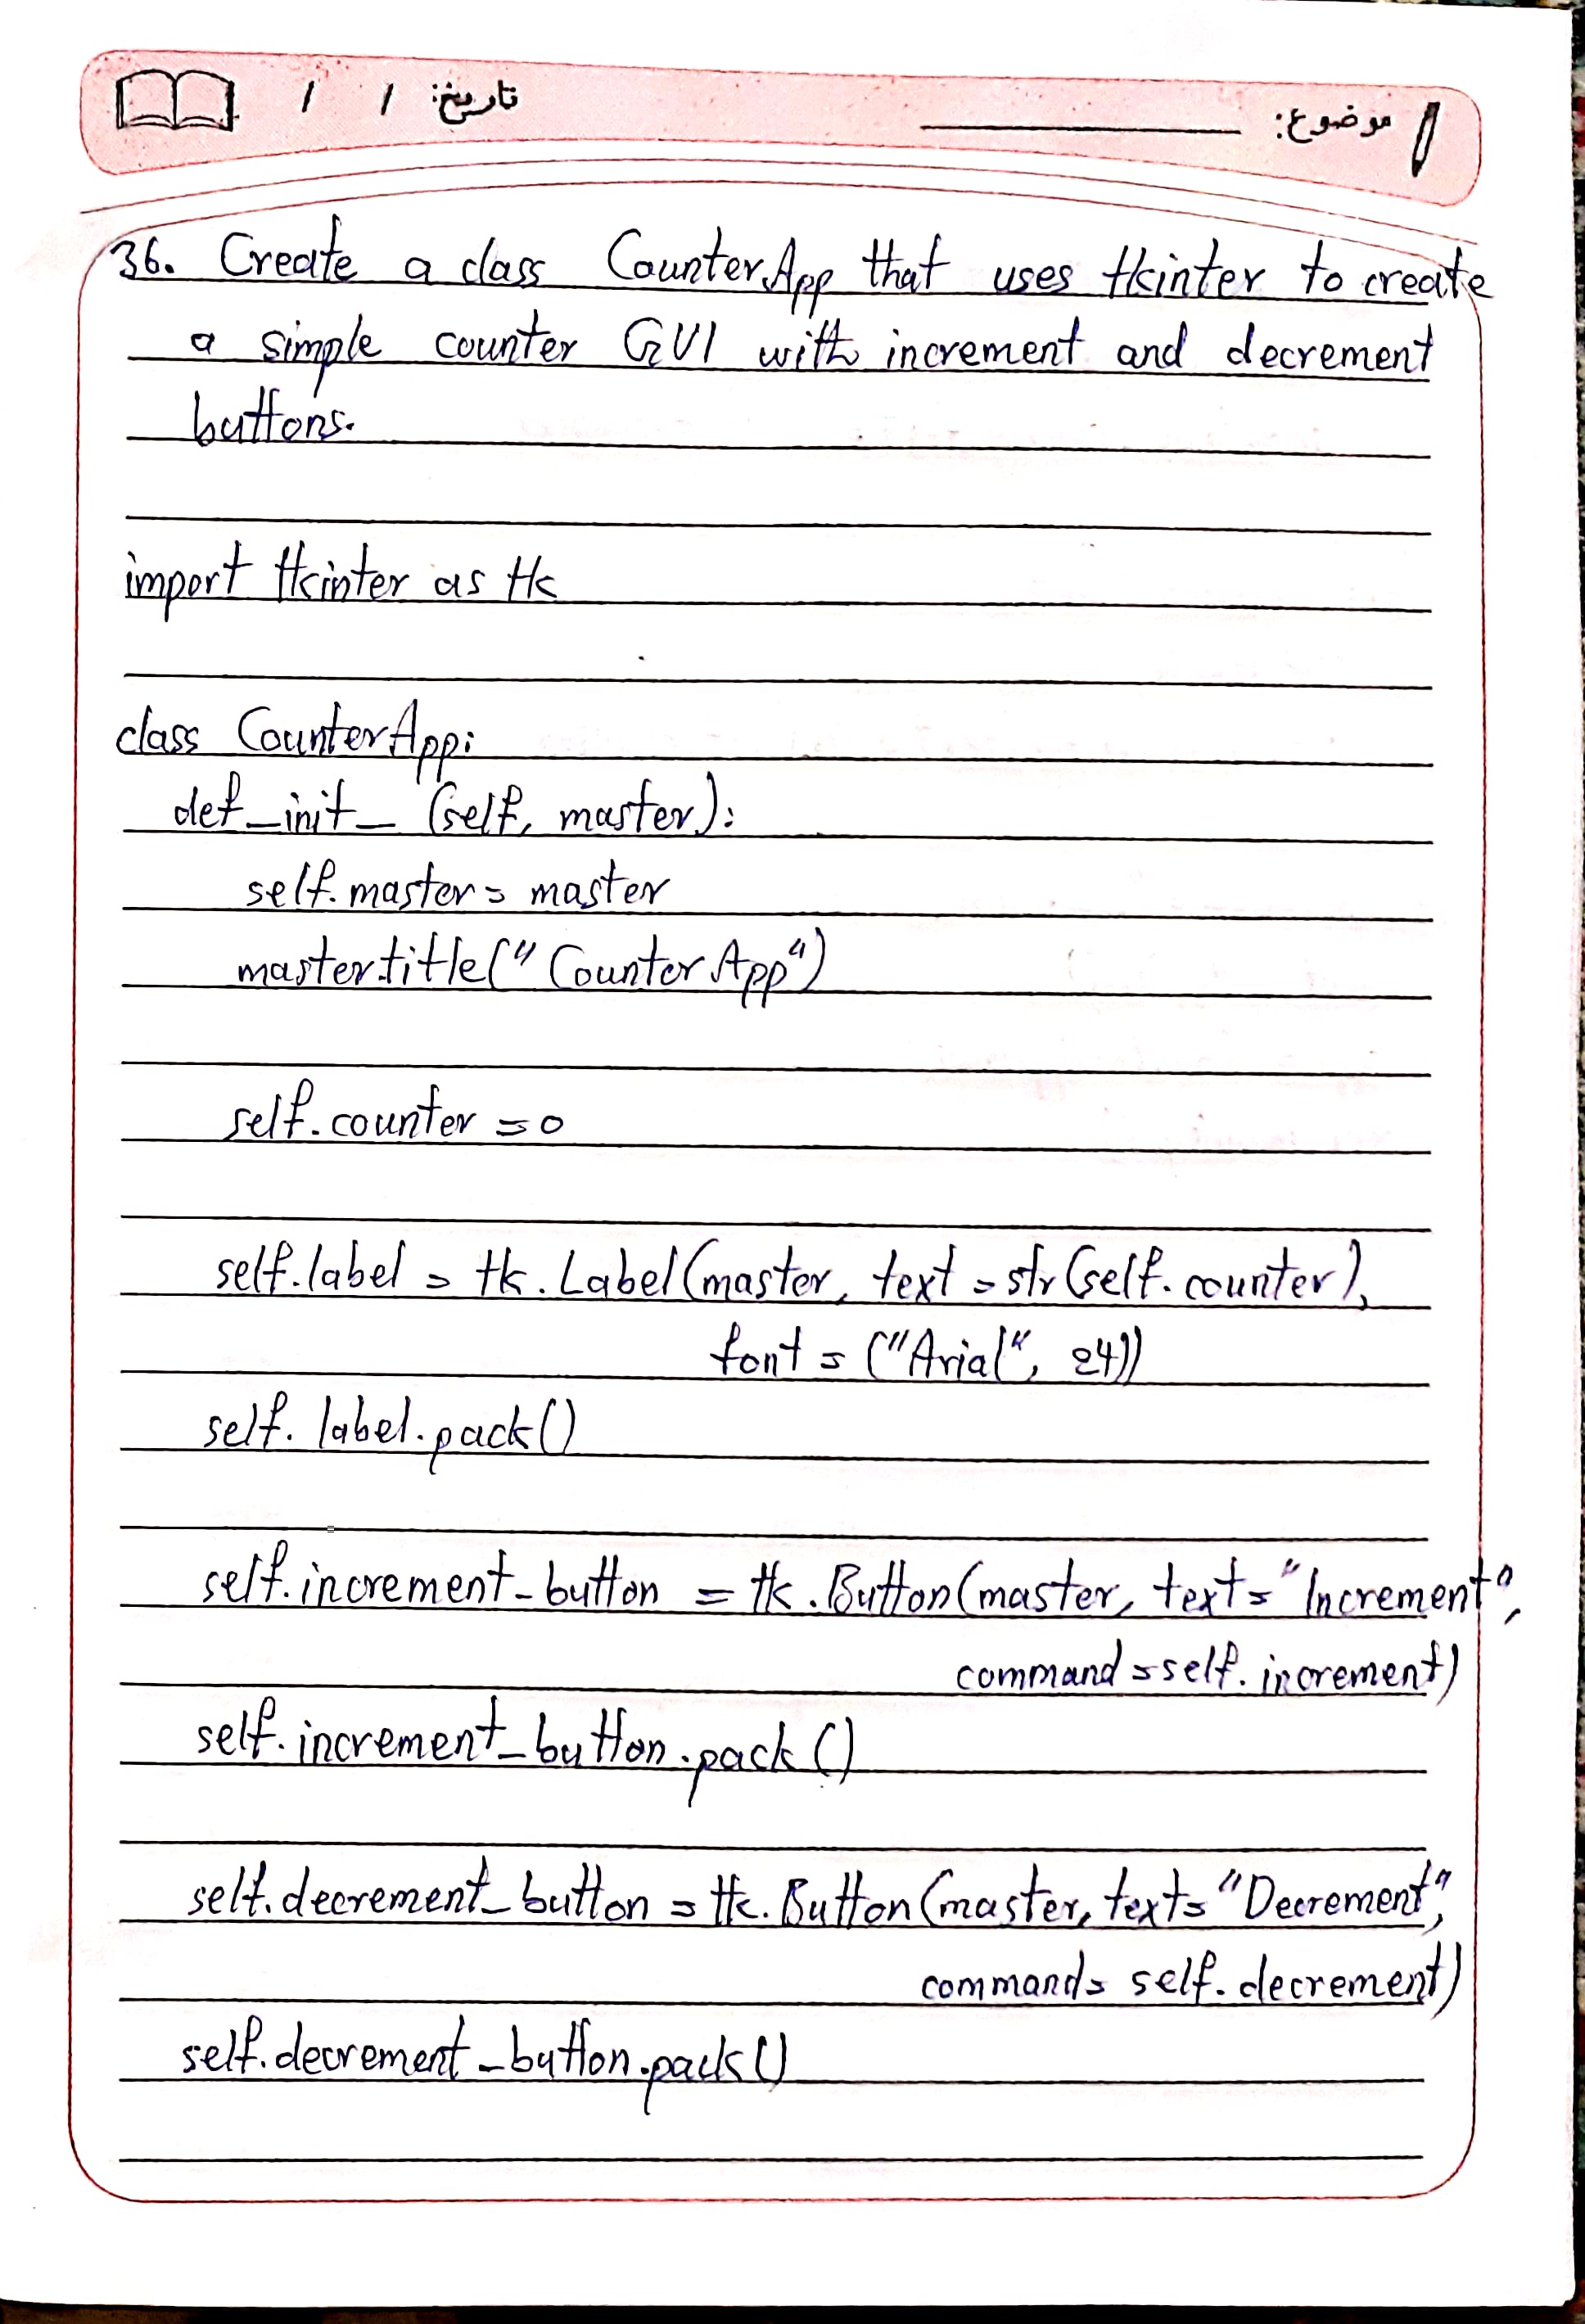 موضوع: تاریخ: / /
36. Create a class CounterApp that uses tkinter to create
a simple counter GUI with increment and decrement
buttons.
import tkinter as tk
class CounterApp:
def _init_ (self, master):
self.master = master
master.title("Counter App")
self.counter = 0
self.label = tk.Label(master, text = str(self.counter),
font = ("Arial", 24))
self.label.pack()
self.increment_button = tk.Button(master, text = "Increment",
command = self.increment)
self.increment_button.pack()
self.decrement_button = tk.Button(master, text = "Decrement",
command = self.decrement)
self.decrement_button.pack()